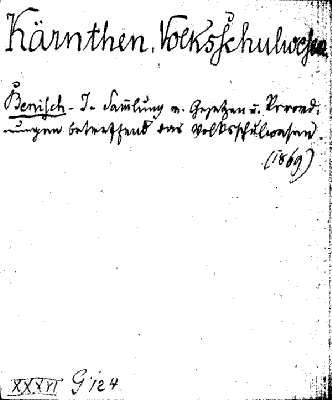 Kärnthen, Volksschulwesen
Benisch - J. Sam̅lung v. Gesetzen u. Verord-
nungen betreffend das Volksschulwesen.
(1869)
XXXVI G 124